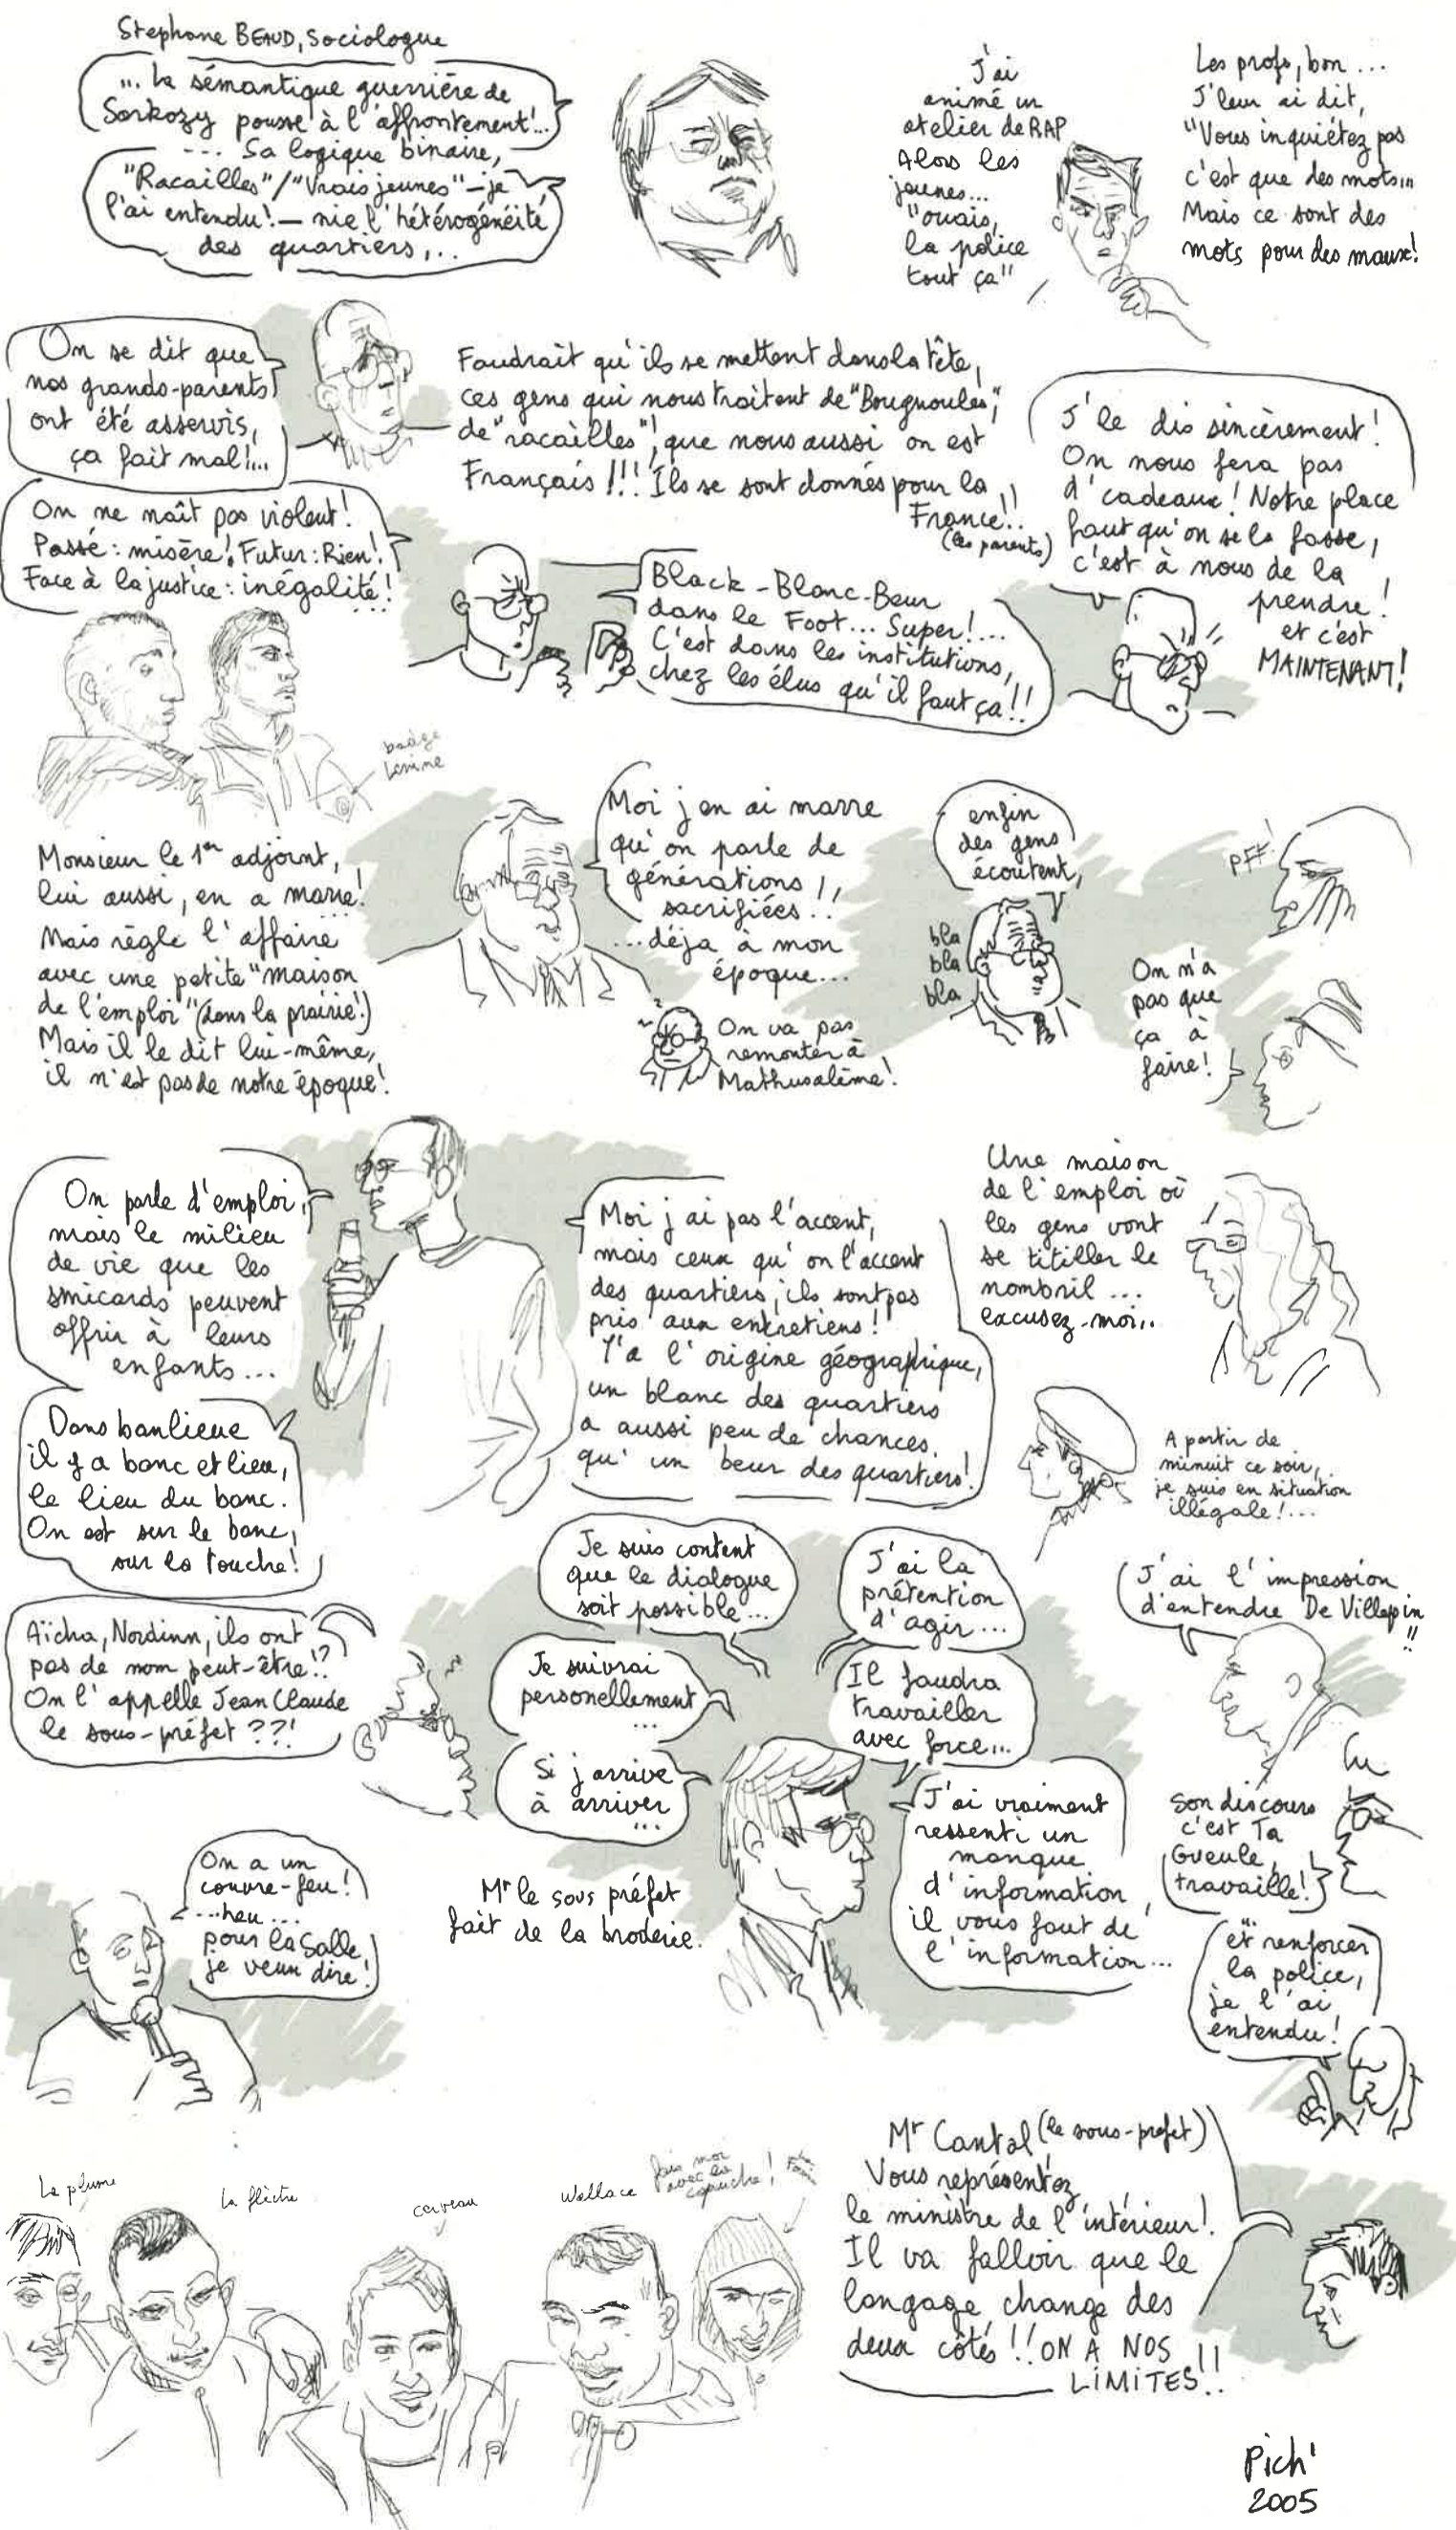 Stephane BEAUD, Sociologue
... la sémantique guerrière de
Sarkozy pousse à l'affrontement!...
... Sa logique binaire,
"Racailles"/"Vrais jeunes" - je
l'ai entendu! - nie l'hétérogénéité
des quartiers,...
J'ai
animé un
atelier de RAP
Alors les
jeunes...
"ouais,
la police
tout ça"
Les profs, bon...
J'leur ai dit,
"Vous inquiétez pas
c'est que des mots...
Mais ce sont des
mots pour des maux!
On se dit que
nos grands-parents
ont été asservis,
ça fait mal!...
Faudrait qu'ils se mettent dans la tête,
ces gens qui nous traitent de "Bougnoules",
de "racailles", que nous aussi on est
Français!!! Ils se sont donnés pour la
France!!
(les parents)
J'le dis sincèrement!
On nous fera pas
d'cadeaux! Notre place
faut qu'on se la fasse,
c'est à nous de la
prendre!
et c'est
MAINTENANT!
On ne naît pas violent!
Passé: misère! Futur: Rien!
Face à la justice: inégalité!
...
Black-Blanc-Beur
dans le Foot... Super!...
C'est dans les institutions,
chez les élus qu'il faut ça!!
badge
Lénine
Monsieur le 1er adjoint,
lui aussi, en a marre!
Mais règle l'affaire
avec une petite "maison
de l'emploi" (dans la prairie!)
Mais il le dit lui-même,
il n'est pas de notre époque!
Moi j'en ai marre
qu'on parle de
générations
sacrifiées!!
...déja à mon
époque...
On va pas
remonter à
Mathusalème!
enfin
des gens
écoutent,
bla
bla
bla
PFF
On n'a
pas que
ça à
faire!
On parle d'emploi,
mais le milieu
de vie que les
smicards peuvent
offrir à leurs
enfants...
Dans banlieue
il y a banc et lieu,
le lieu du banc.
On est sur le banc,
sur la touche!
Moi j'ai pas l'accent,
mais ceux qu'on l'accent
des quartiers, ils sont pas
pris aux entretiens!
Y'a l'origine géographique,
un blanc des quartiers
a aussi peu de chances,
qu'un beur des quartiers!
Une maison
de l'emploi où
les gens vont
se titiller le
nombril...
excusez-moi...
A partir de
minuit ce soir,
je suis en situation
illégale!...
Aïcha, Nordinn, ils ont
pas de nom peut-être!?
On l'appelle Jean Claude
le sous-préfet??!
Je suis content
que le dialogue
soit possible...
Je suivrai
personellement
...
Si j'arrive
à arriver
...
J'ai la
prétention
d'agir...
Il faudra
travailler
avec force...
J'ai vraiment
ressenti un
manque
d'information,
il vous faut de
l'information...
Mr le sous préfet
fait de la broderie.
J'ai l'impression
d'entendre De Villepin
!!
Son discours
c'est Ta
Gueule,
travaille!
et renforcer
la police,
je l'ai
entendu!
On a un
couvre-feu!
...heu...
pour la salle,
je veux dire!
La plume
la flèche
cerveau
Wallace
fais moi
avec la
capuche!
Mr Cantal (le sous-préfet)
Vous représentez
le ministre de l'intérieur!
Il va falloir que le
langage change des
deux côtés!! ON A NOS
LIMITES!!
Pich'
2005